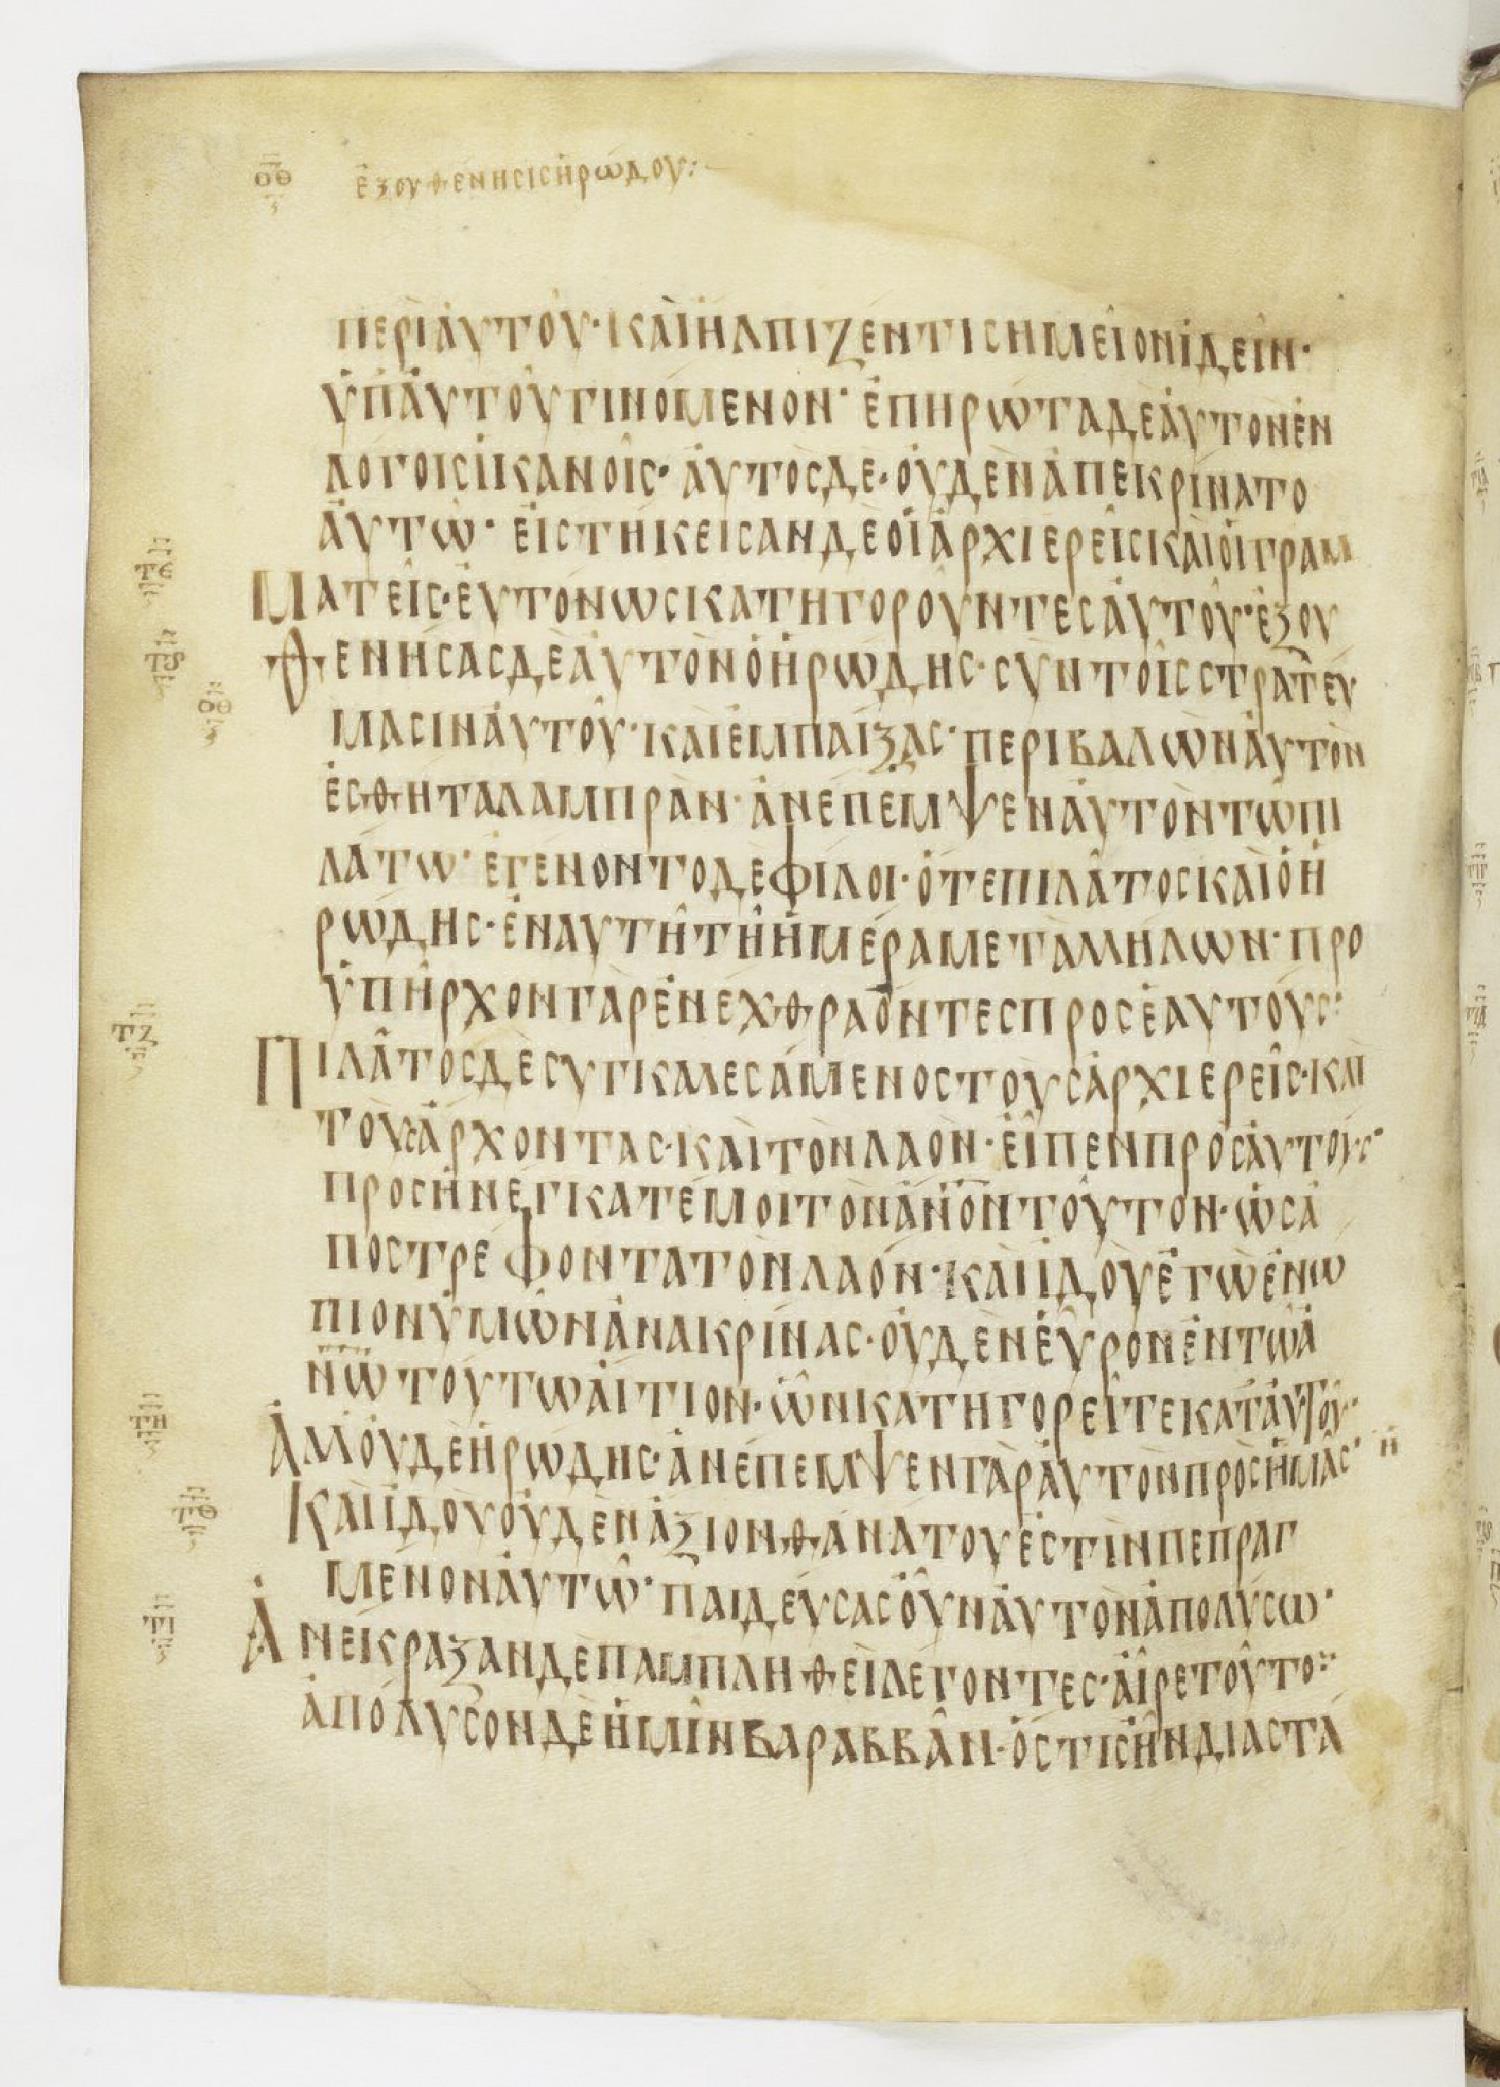 ΟΘ ἐξουθένησις ἡρώδου:
περὶ ἀυτοῦ· καὶ ἤλπιζέν τι σημεῖον ἰδεῖν·
ὑπ' ἀυτοῦ γινόμενον· ἐπηρώτα δὲ ἀυτὸν ἐν
λόγοις ἱκανοῖς· ἀυτὸς δὲ· ὀυδὲν ἀπεκρίνατο
ἀυτῶ· ἐιστήκεισαν δὲ ὁι ἀρχιερεῖς καὶ ὁι γραμ
ΤΕ ματεῖς· ἐυτόνως κατηγοροῦντες ἀυτοῦ· ἐξου
ΤϚ ΟΘ θενήσας δὲ ἀυτὸν ὁ ἡρώδης· σὺν τοῖς στρατεύ
μασιν ἀυτοῦ· καὶ ἐμπαίξας· περιβαλὼν ἀυτὸν
ἐσθῆτα λαμπρὰν· ἀνέπεμψεν ἀυτὸν τῶ πι
λάτω· ἐγένοντο δὲ φίλοι· ὅ τε πιλᾶτος καὶ ὁ ἡ
ρώδης· ἐν αυτῆ τῆ ἡμέρα μετ αλλήλων· προ
ὑπῆρχον γὰρ ἐν έχθρα ὄντες πρὸς ἑαυτούς:
ΤΖ Πιλᾶτος δὲ συγκαλεσάμενος τοὺς ἀρχιερεῖς· καὶ
τοὺς ἄρχοντας· καὶ τὸν λαὸν· ἐῖπεν πρὸς ἀυτούς·
προσηνέγκατέ μοι τὸν ἀνον τοῦτον· ὡς ἀ
ποστρέφοντα τὸν λαόν· καὶ ἰδοὺ ἐγὼ ἐνώ
πιον ὑμῶν ἀνακρίνας· ὀυδὲν ἑῦρον ἐν τῶ ἀ
νω τούτω ἀίτιον· ὧν κατηγορεῖτε κατ ἀυτοῦ·
ΤΗ Ἀλλ ὀυδὲ ἡρώδης· ἀνέπεμψεν γὰρ ἀυτὸν πρὸς ἡμᾶς·
ΤΘ Καὶ ἰδοὺ ὀυδὲν ἄξιον θανάτου ἐστὶν πεπραγ
μένον ἀυτῶ· παιδεύσας ὀῦν ἀυτὸν ἀπολύσω·
ΤΙ Ἀνέκραξαν δὲ παμπληθεὶ λέγοντες· ἀῖρε τοῦτο̅·
ἀπόλυσον δὲ ἡμῖν βαραββᾶν· ὅστις ἦν διὰ στά